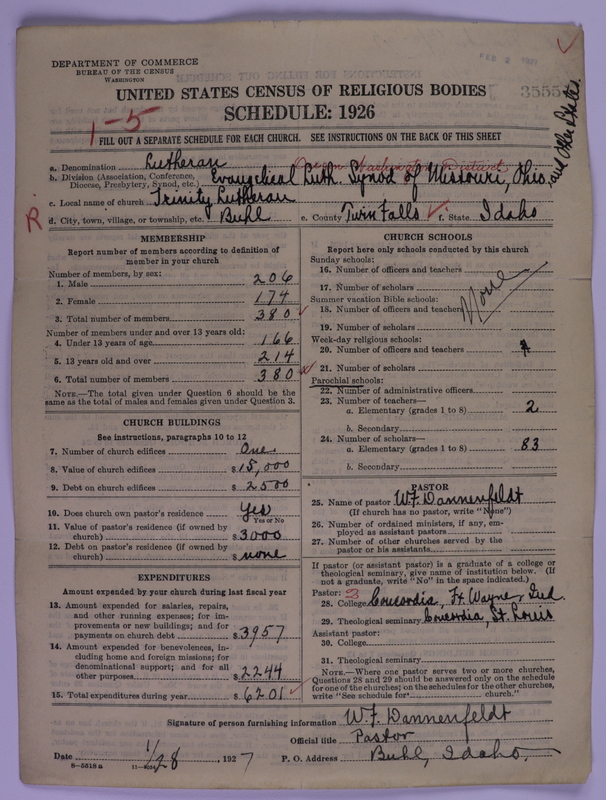 DEPARTMENT OF COMMERCE
BUREAU OF THE CENSUS
WASHINGTON
UNITED STATES CENSUS OF RELIGIOUS BODIES
SCHEDULE: 1926
1-5
FILL OUT A SEPARATE SCHEDULE FOR EACH CHURCH. SEE INSTRUCTIONS ON THE BACK OF THIS SHEET
a. Denomination Lutheran
b. Division (Association, Conference, Diocese, Presbytery, Synod, etc.) Evangelical Luth. Synod of Missouri, Ohio, and Other States.
c. Local name of church Trinity Lutheran
R
d. City, town, village, or township, etc. Buhl e. County Twin Falls f. State Idaho
MEMBERSHIP
Report number of members according to definition of
member in your church
Number of members, by sex:
1. Male 206
2. Female 174
3. Total number of members 380
Number of members under and over 13 years old:
4. Under 13 years of age 166
5. 13 years old and over 214
6. Total number of members 380
NOTE.—The total given under Question 6 should be the
same as the total of males and females given under Question 3.
CHURCH BUILDINGS
See instructions, paragraphs 10 to 12
7. Number of church edifices One.
8. Value of church edifices $15,000
9. Debt on church edifices $2500
10. Does church own pastor's residence? Yes
Yes or No
11. Value of pastor's residence (if owned by
church) $3000
12. Debt on pastor's residence (if owned by
church) $none
EXPENDITURES
Amount expended by your church during last fiscal year
13. Amount expended for salaries, repairs,
and other running expenses; for im-
provements or new buildings; and for
payments on church debt $3957
14. Amount expended for benevolences, in-
cluding home and foreign missions; for
denominational support; and for all
other purposes $2244
15. Total expenditures during year $6201
CHURCH SCHOOLS
Report here only schools conducted by this church
Sunday schools:
16. Number of officers and teachers
17. Number of scholars
Summer vacation Bible schools:
None
18. Number of officers and teachers
19. Number of scholars
Week-day religious schools:
20. Number of officers and teachers
21. Number of scholars
Parochial schools:
22. Number of administrative officers
23. Number of teachers—
a. Elementary (grades 1 to 8) 2
b. Secondary
24. Number of scholars—
a. Elementary (grades 1 to 8) 83
b. Secondary
PASTOR
25. Name of pastor W.F. Dannenfeldt
(If church has no pastor, write "None")
26. Number of ordained ministers, if any, em-
ployed as assistant pastors
27. Number of other churches served by the
pastor or his assistants
If pastor (or assistant pastor) is a graduate of a college or
theological seminary, give name of institution below. (If
not a graduate, write "No" in the space indicated.)
Pastor: 3
28. College Concordia, Ft. Wayne, Ind.
29. Theological seminary Concordia, St. Louis
Assistant pastor:
30. College
31. Theological seminary
NOTE.—Where one pastor serves two or more churches,
Questions 28 and 29 should be answered only on the schedule
for one of the churches; on the schedules for the other churches,
write "See schedule for church."
Signature of person furnishing information W.F. Dannenfeldt
Official title Pastor
Date 1/28 1927 P. O. Address Buhl, Idaho.
8-5518 a